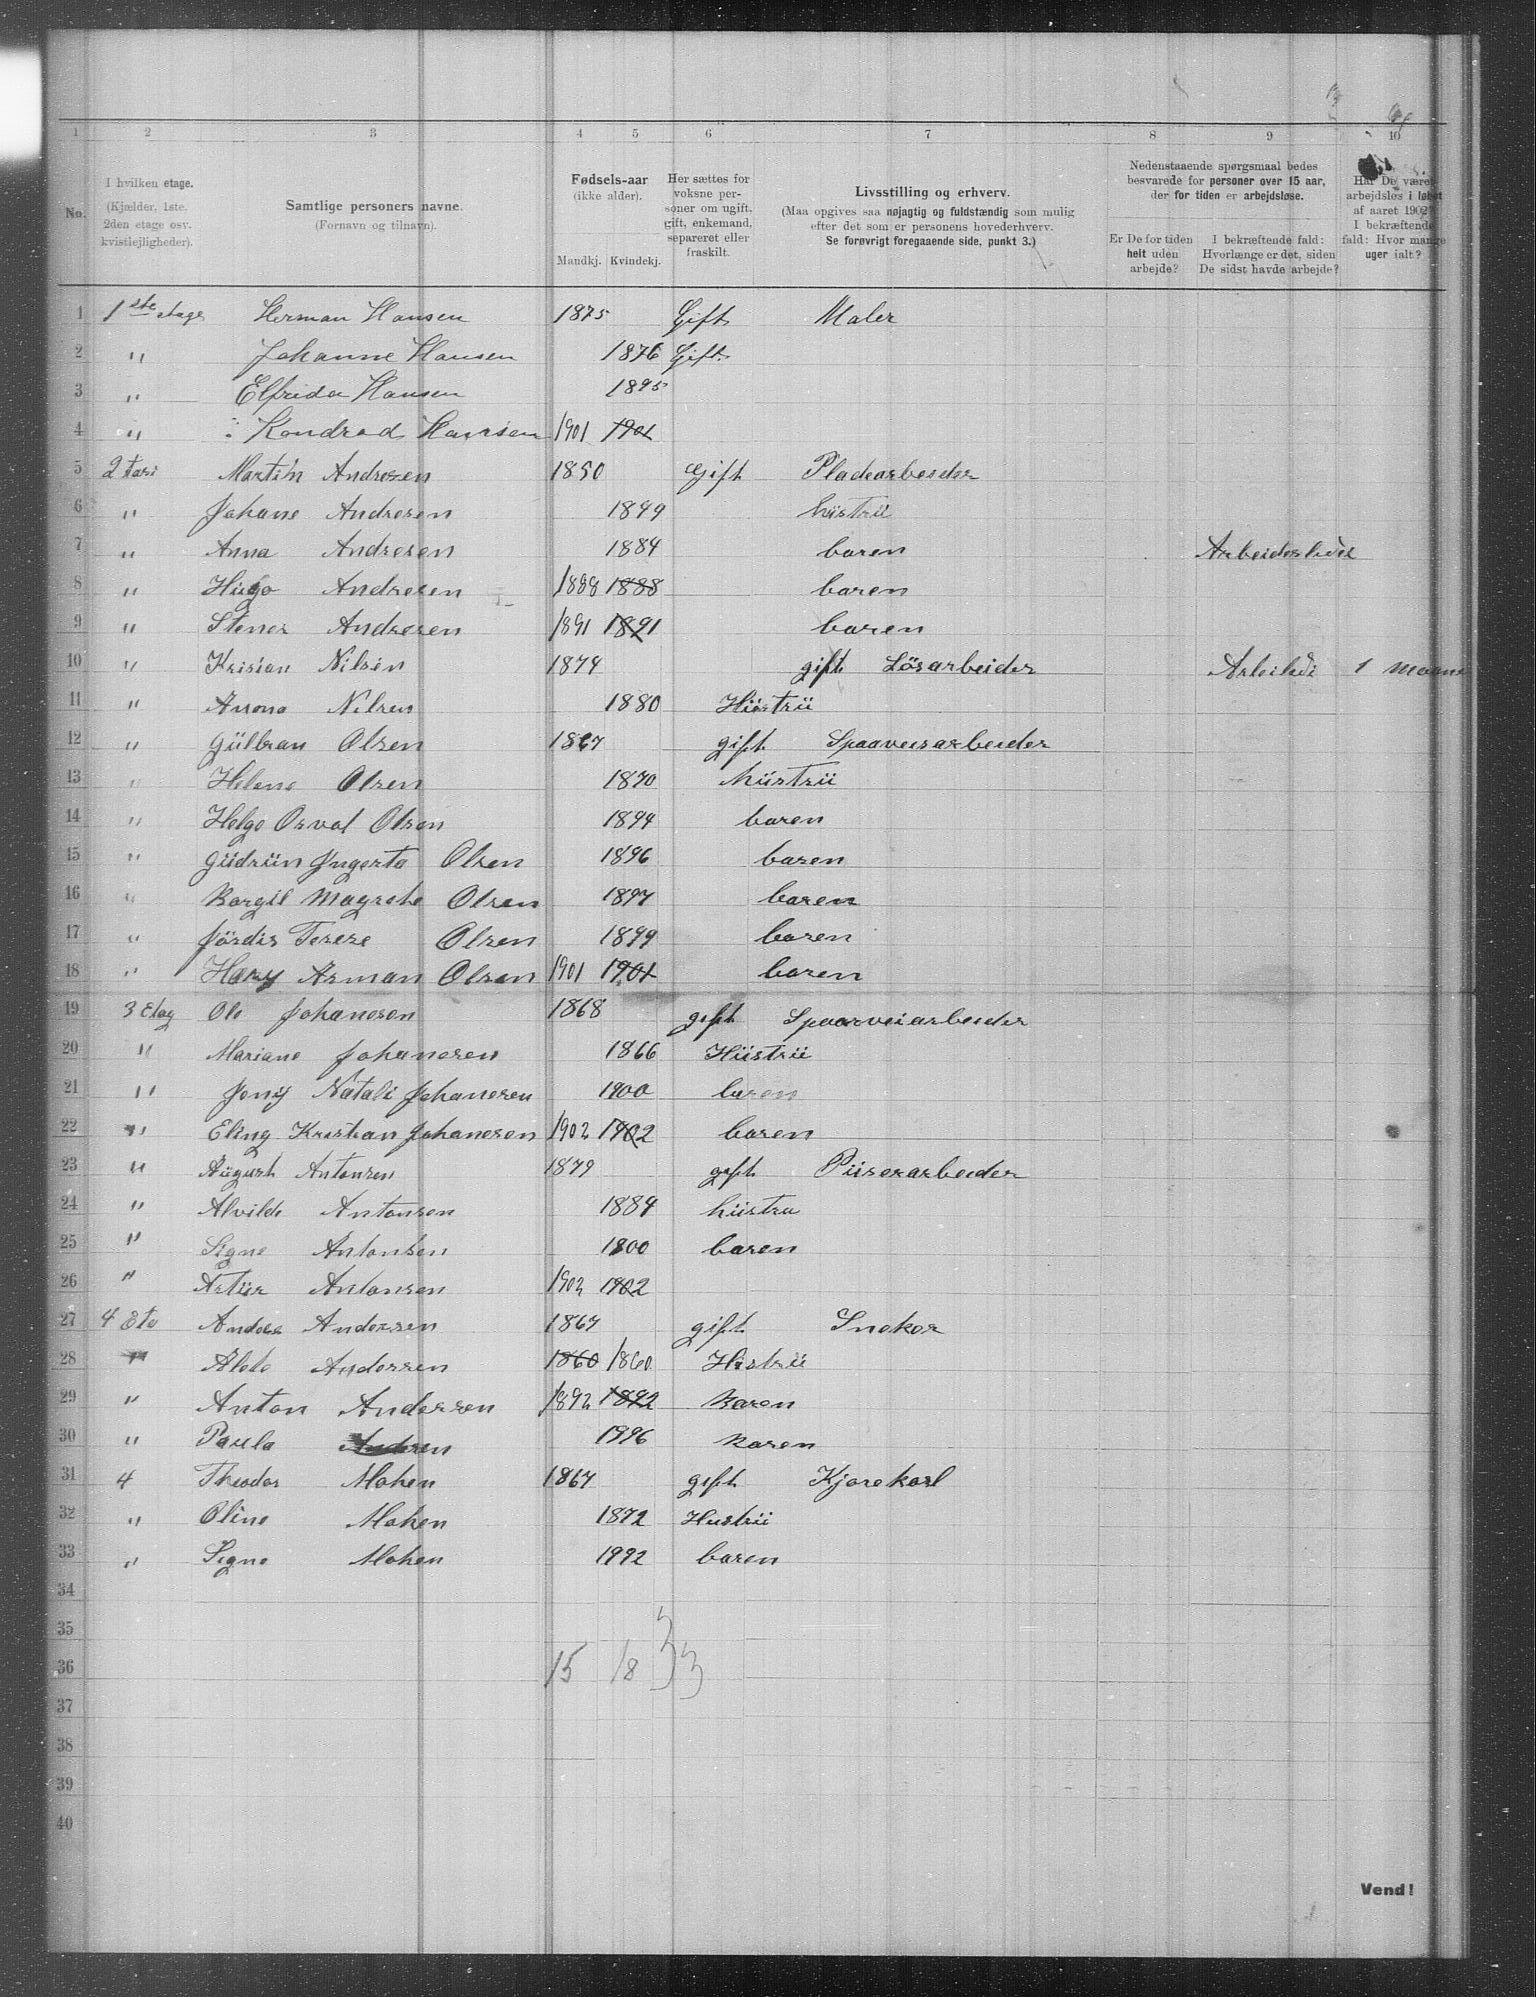 1 2 3 4 5 6 7 8 9 10
No.
I hvilken etage. (Kjælder, 1ste. 2den etage osv. kvistlejligheder).
Samtlige personers navne. (Fornavn og tilnavn).
Fødsels-aar (ikke alder). Mandkj. Kvindekj.
Her sættes for voksne personer om ugift, gift, enkemand, separeret eller fraskilt.
Livsstilling og erhverv. (Maa opgives saa nøjagtig og fuldstændig som mulig efter det som er personens hovederhverv. Se forøvrigt foregaaende side, punkt 3.)
Nedenstaaende spørgsmaal bedes besvarede for personer over 15 aar, der for tiden er arbejdsløse.
Er De for tiden helt uden arbejde?
I bekræftende fald: Hvorlænge er det, siden De sidst havde arbejde?
Har De været arbejdsløs i løbet af aaret 1902? I bekræftende fald: Hvor mange uger ialt?
1 1ste etage Herman Hansen 1875 Gift Maler
2 " Johanne Hansen 1876 Gift
3 " Elfrida Hansen 1895
4 " Kondrad Hansen 1901 1901
5 2 Martin Andresen 1850 Gift Pladearbeider
6 " Johane Andresen 1849 hüstrü
7 " Anna Andresen 1884 baren
8 " Hügo Andresen 1888 1888 baren
9 " Stener Andresen 1891 1891 baren
10 " Krisian Nilsen 1874 gift Lösarbeider 1
11 " Nilsen 1880 Hüstrü
12 " Gülbran Olsen 1867 gift Spaaveisarbeider
13 " Helene Olsen 1870 Hüstrü
14 " Helge Osval Olsen 1894 baren
15 " Güdrün Ingerta Olsen 1896 baren
16 " Borgil Magrete Olsen 1897 baren
17 " Jördis Terese Olsen 1899 baren
18 " Hary Arman Olsen 1901 1901 baren
19 3 Etag Ole Johanesen 1868 gift Spaarveiarbeider
20 " Mariane Johanesen 1866 Hüstrü
21 " Jeny Natali Johanesen 1900 baren
22 " Eling Kristian Johanesen 1902 1902 baren
23 " Aügust Antonsen 1879 gift Püserarbeider
24 " Alvilde Antonsen 1884 hüstru
25 " Signe Antonsen 1800 baren
26 " Artür Antonsen 1902 1902
27 4 Eta Andersen 1867 gift Sneker
28 " Andersen 1860 1860 Hüstrü
29 " Anton Andersen 1892 1892 Baren
30 " Paula 1996 Baren
31 4 Theodor Mohen 1867 gift Kjorekarl
32 " Oline Mohen 1872 Hustrü
33 " Signe Mohen 1992 baren
34
35
36 15 18 33
37
38
39
40
Vend!